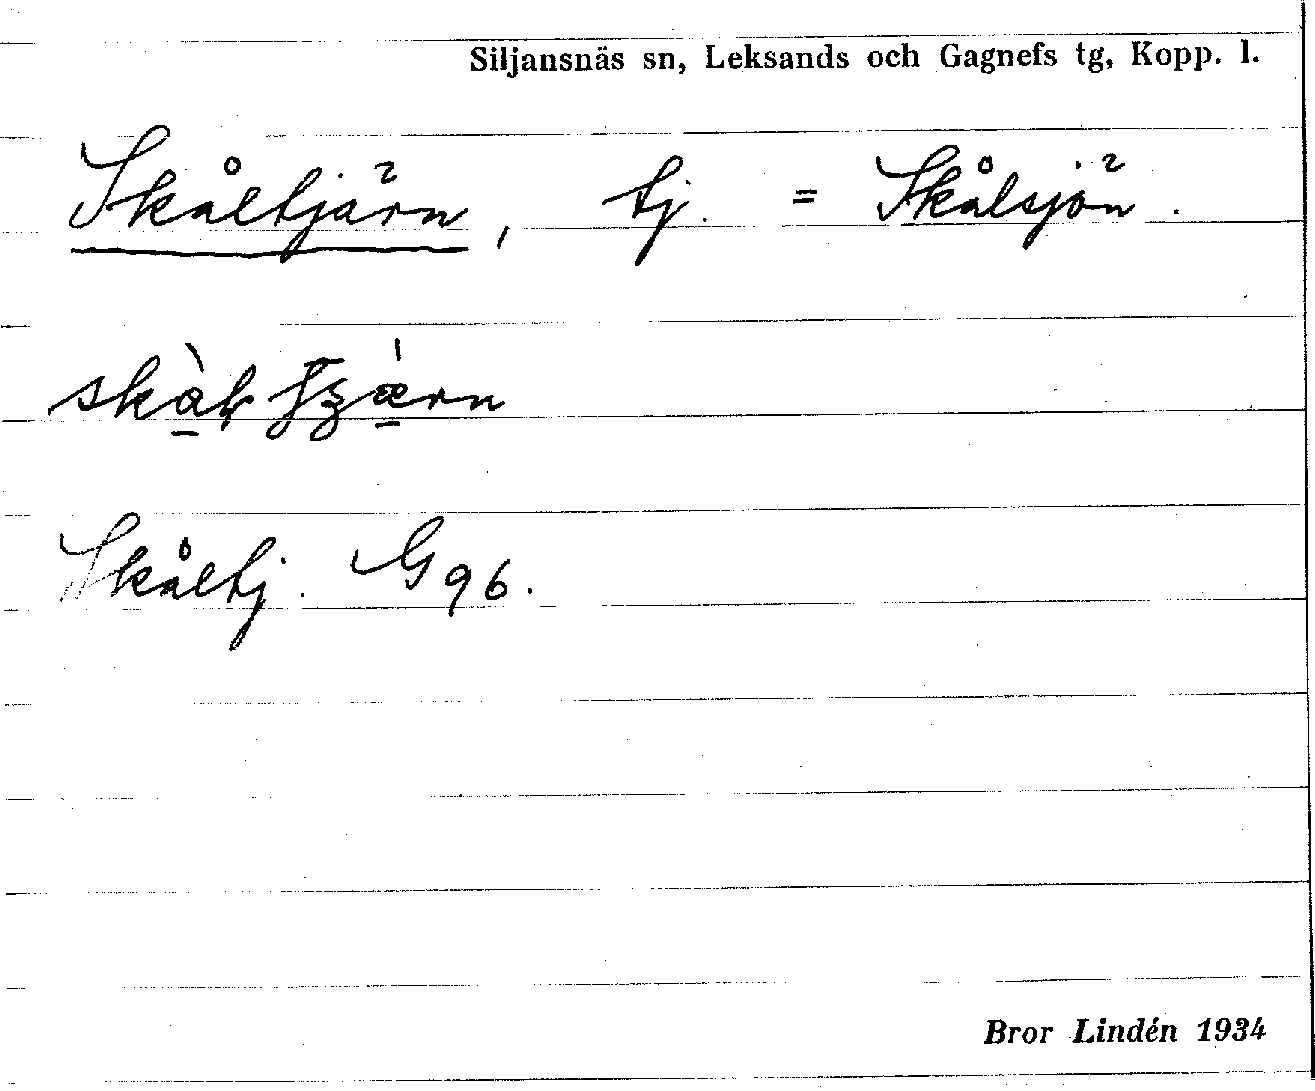 Siljansnäs sn, Leksands och Gagnefs tg, Kopp. l.
Skåltjärn, tj. = Skålsjön.
Skåltj. G 96.
Bror Lindén 1934